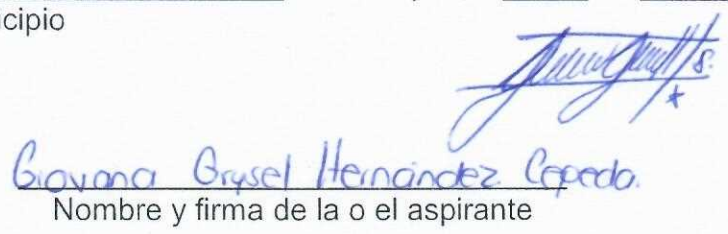 cipio
Giovana Grysel Hernández Cepeda.
Nombre y firma de la o el aspirante